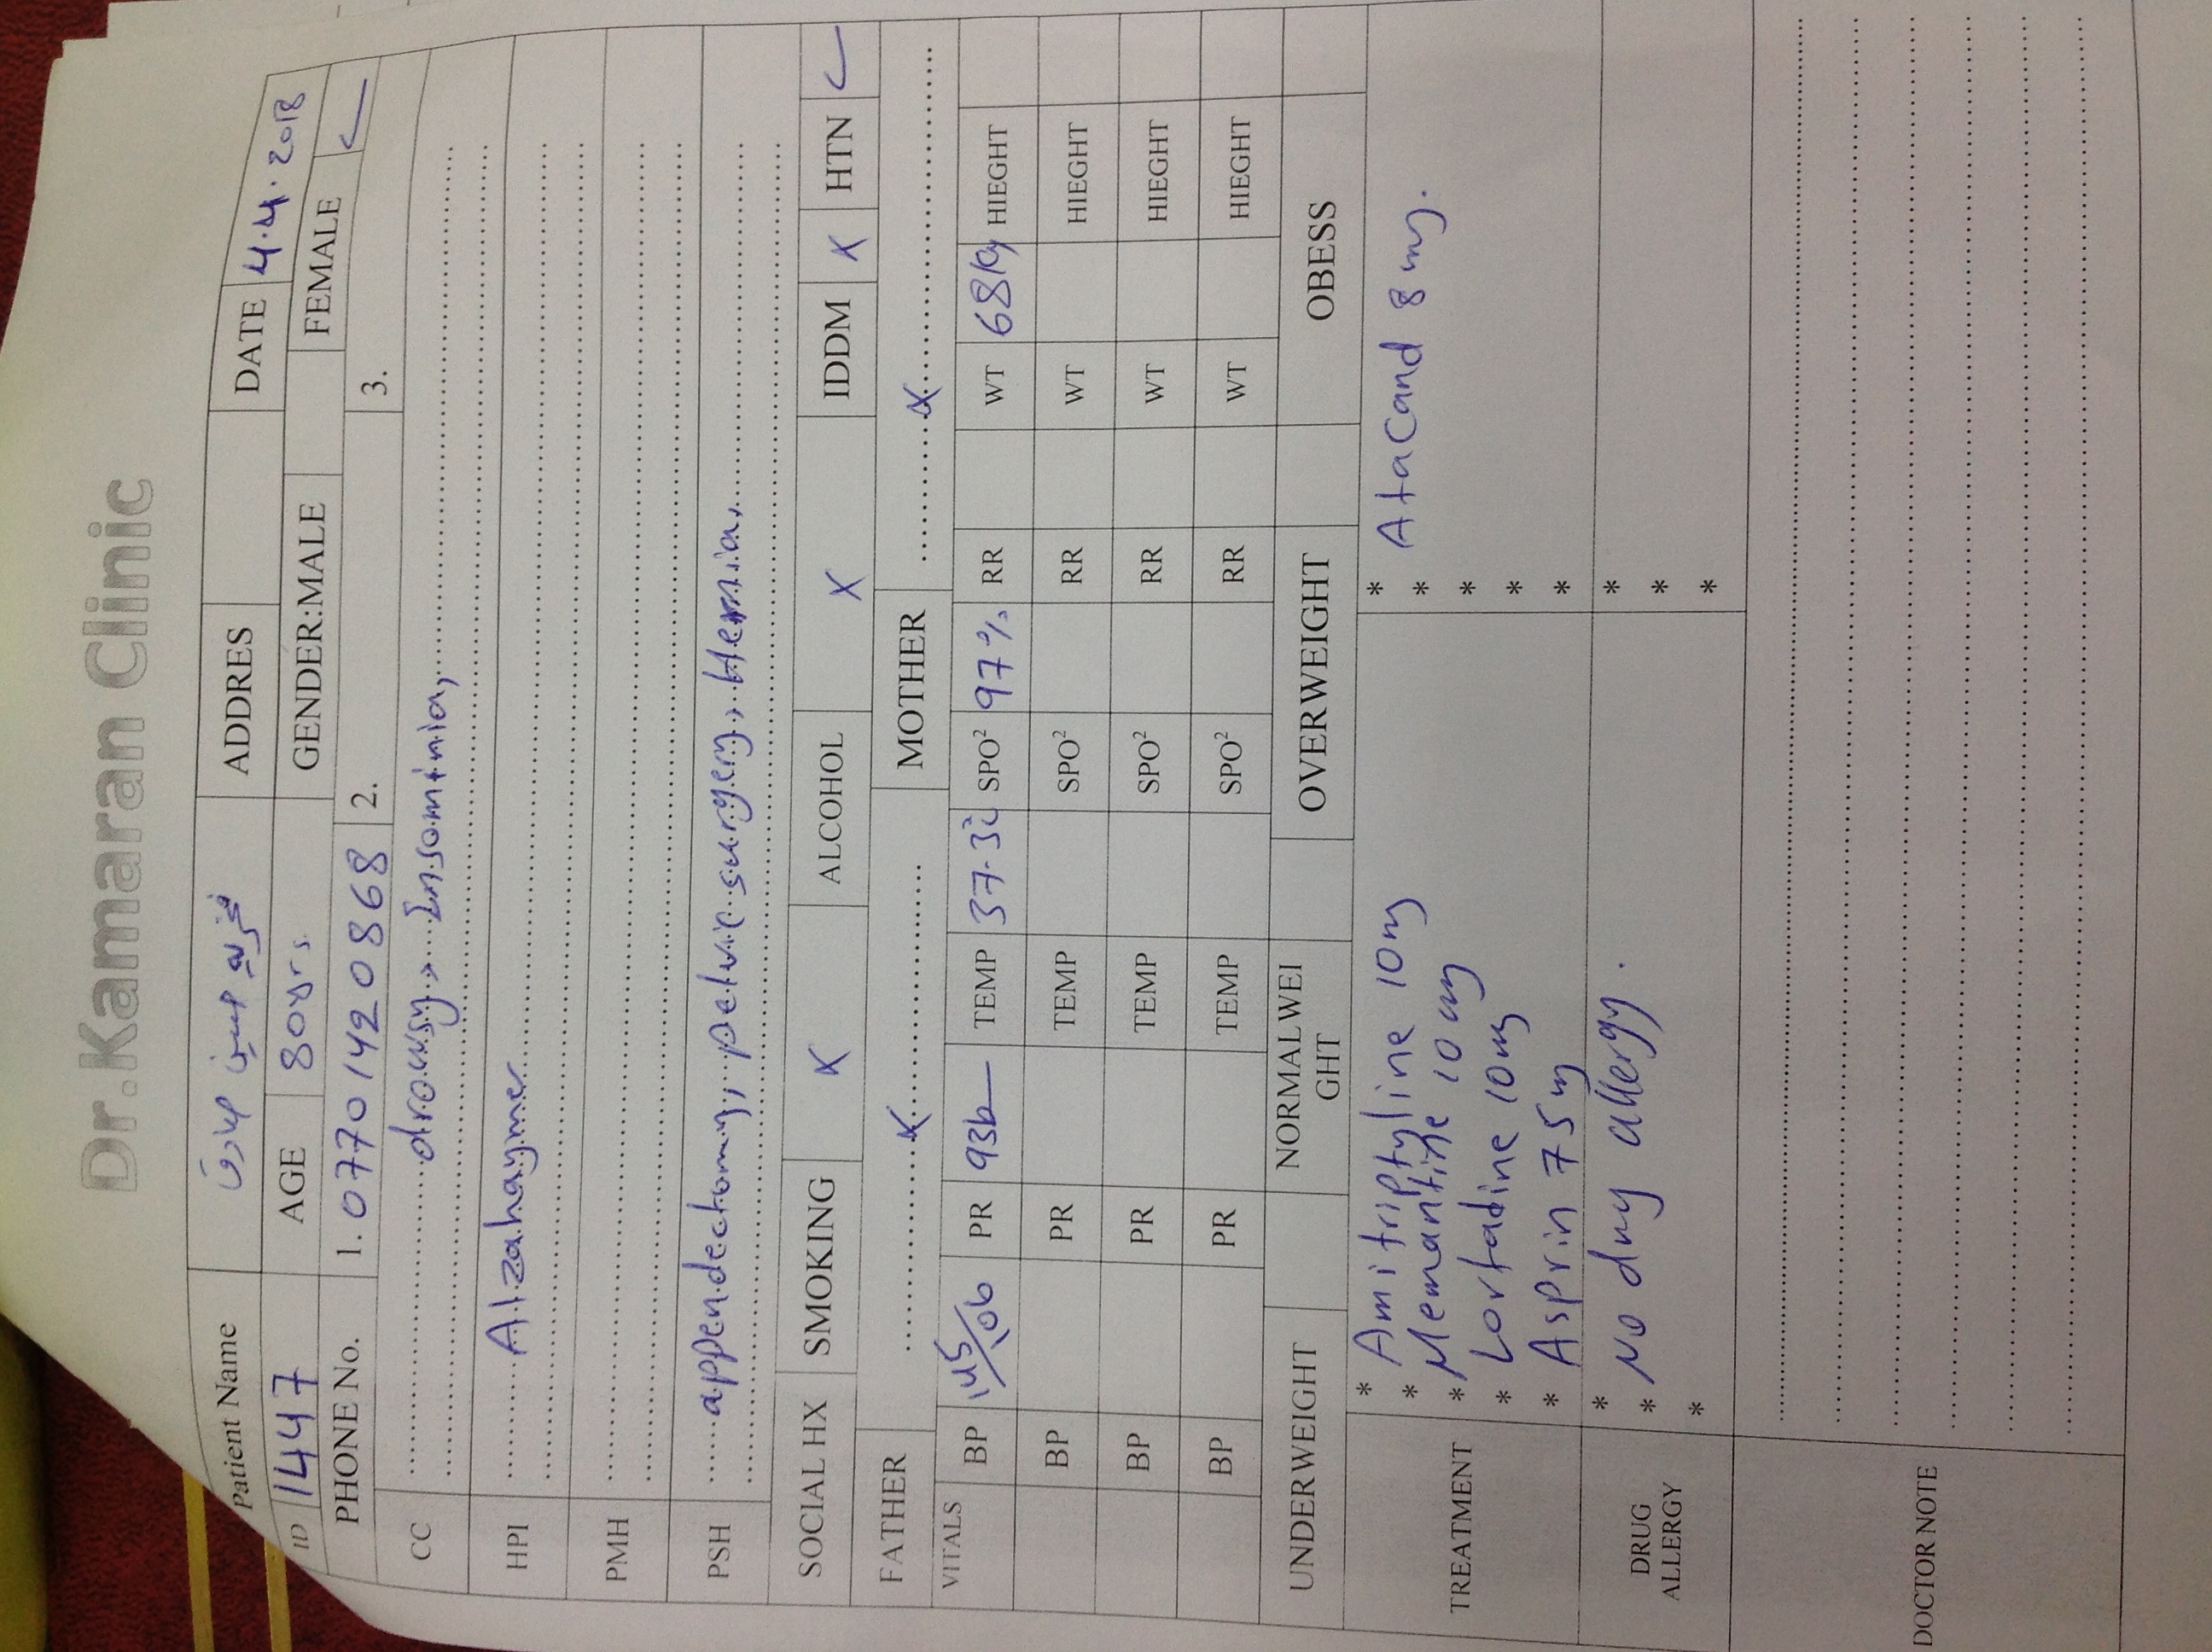 Dr.Kamaran Clinic
Patient Name فخريه حسين صادق ADDRES DATE 4.4.2018
ID 1447 AGE 80yrs. GENDER:MALE FEMALE ✓
PHONE No. 1. 07701420868 2. 3.
CC drowsy, Insomimia,
HPI Alzahaymer
PMH
PSH appendectomy, pelvic surgery, Hernia,
SOCIAL HX SMOKING X ALCOHOL X IDDM X HTN ✓
FATHER X MOTHER X
VITALS BP 145/ PR 93b TEMP 37.3 SPO² 97% RR WT 68kg HIEGHT
BP PR TEMP SPO² RR WT HIEGHT
BP PR TEMP SPO² RR WT HIEGHT
BP PR TEMP SPO² RR WT HIEGHT
UNDERWEIGHT NORMALWEI
GHT OVERWEIGHT OBESS
TREATMENT
* Amitriptyline 10mg * Atacand 8mg.
* Memantine 10mg *
* Lortadine 10mg *
* Asprin 75mg *
* *
DRUG
ALLERGY
* No drug allergy. *
* *
* *
DOCTOR NOTE